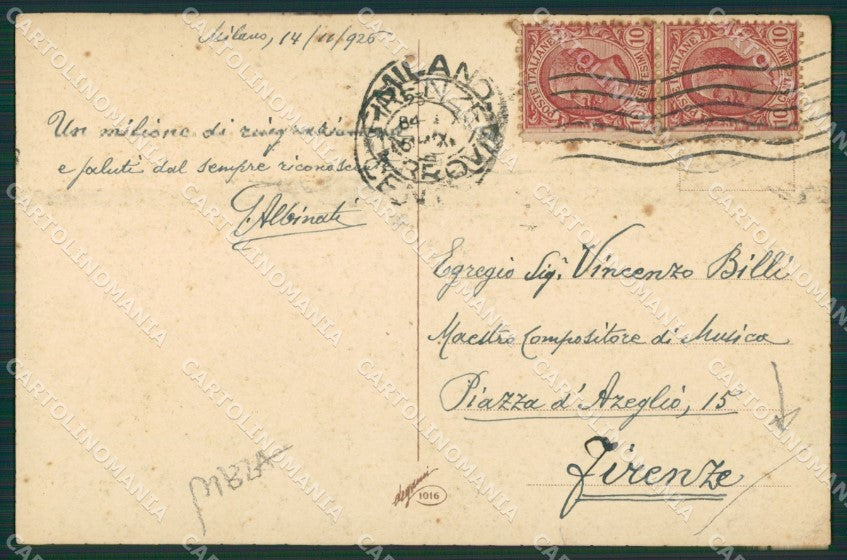 Milano, 14/11/926
Un milione di
e saluti dal sempre
G. Albinati
MILANO
FERROVIA
POSTE ITALIANE
CENTESIMI
10 10
POSTE ITALIANE
CENTESIMI
10 10
Egregio Sig. Vincenzo Billi
Maestro Compositore di Musica
Piazza d'Azeglio, 15
Firenze
degami
1016
CARTOLINOMANIA